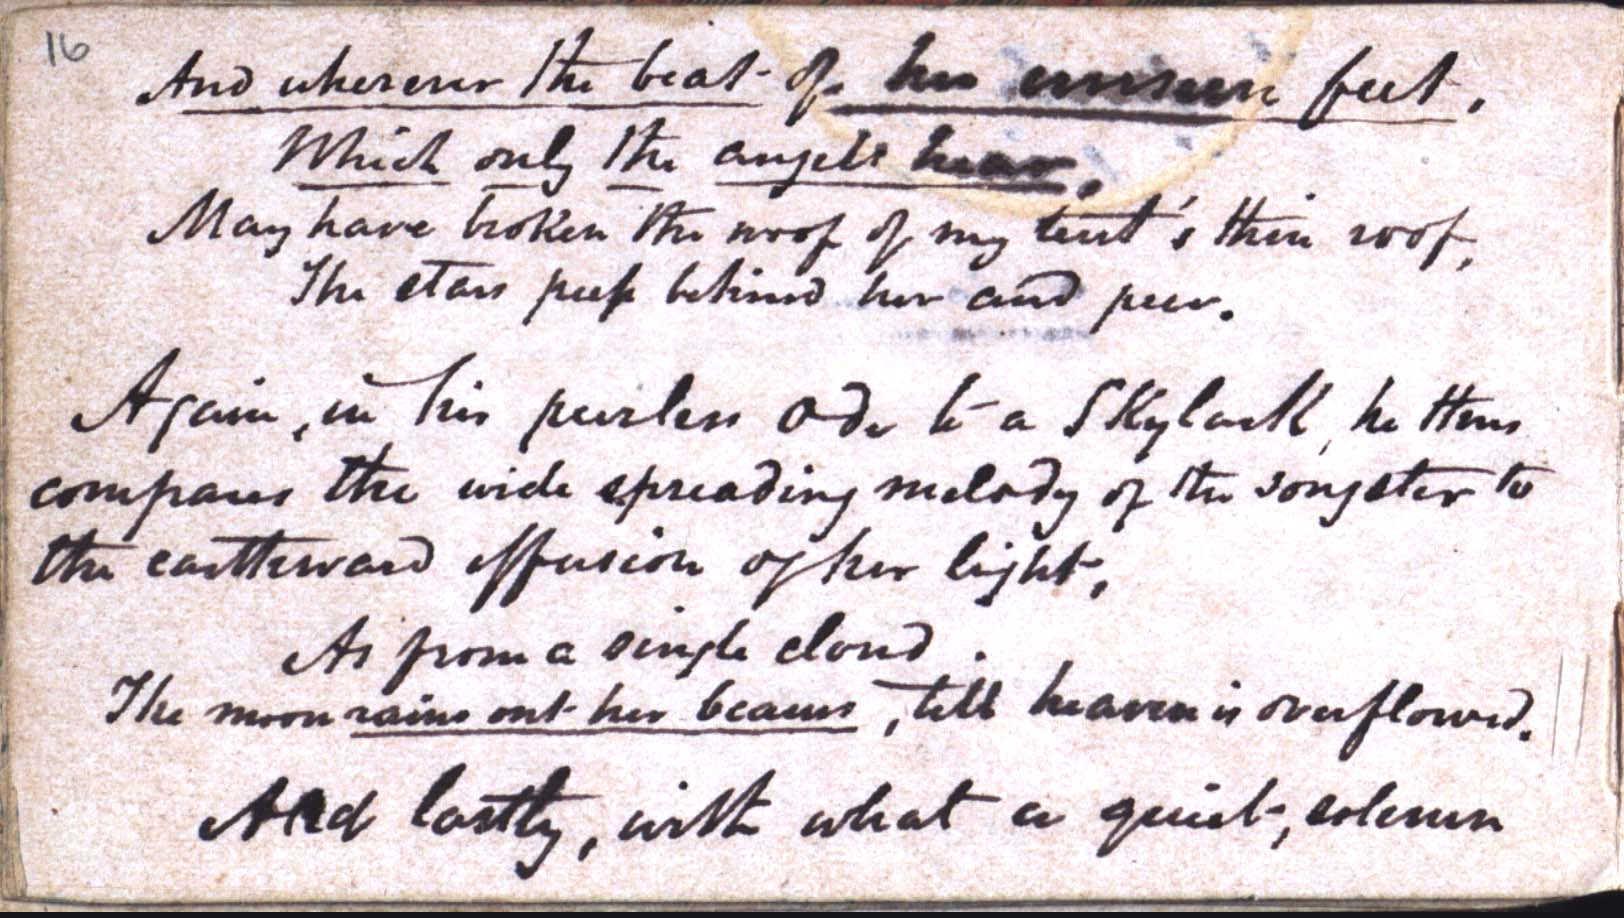 16
And wherever the beat of her unseen feet,
Which only the angels hear,
May have broken the woof of my tent's thin roof,
The stars peep behind her and peer.
Again, in his peerless Ode to a Skylark, he thus
compares the wide spreading melody of the songster to
the earthward effusion of her light,
As from a single cloud.
The moon rains out her beams, till heaven is overflowed.
And lastly, with what a quiet, solemn